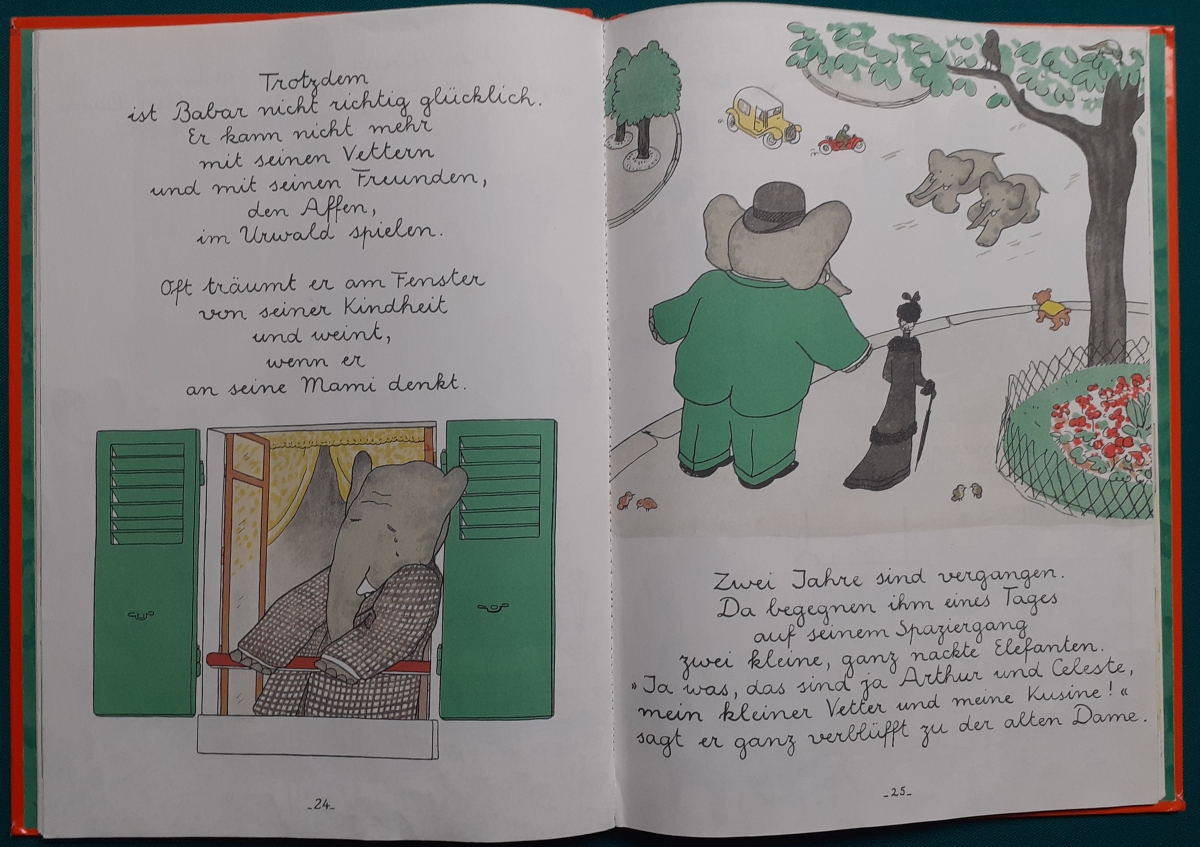 Trotzdem
ist Babar nicht richtig glücklich.
Er kann nicht mehr
mit seinen Vettern
und mit seinen Freunden,
den Affen,
im Urwald spielen.
Oft träumt er am Fenster
von seiner Kindheit
und weint,
wenn er
an seine Mami denkt.
-24-
Zwei Jahre sind vergangen.
Da begegnen ihm eines Tages
auf seinem Spaziergang
zwei kleine, ganz nackte Elefanten.
»Ja was, das sind ja Arthur und Celeste,
mein kleiner Vetter und meine Kusine!«
sagt er ganz verblüfft zu der alten Dame.
-25-